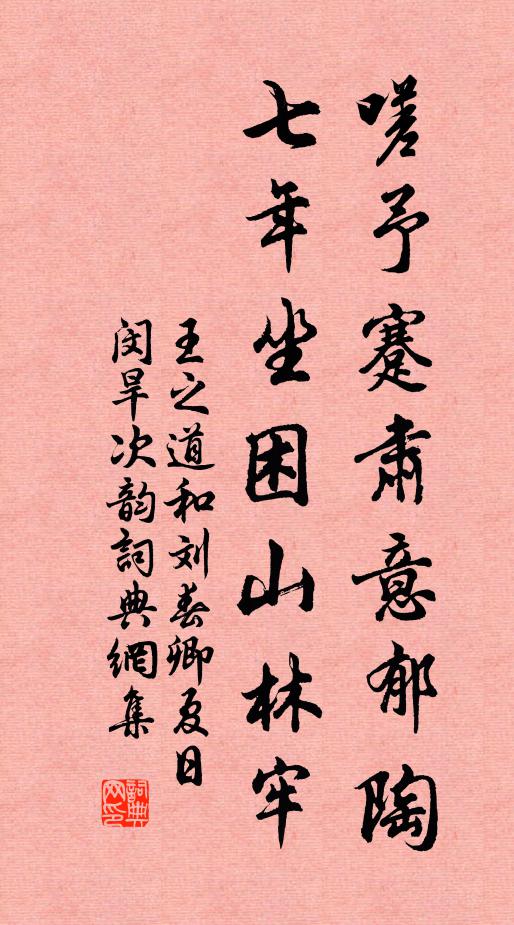 嗟予蹇肃意郁陶
七年坐困山林牢
王之道和刘春卿夏日
闵旱次韵詞典網集
詞典网印